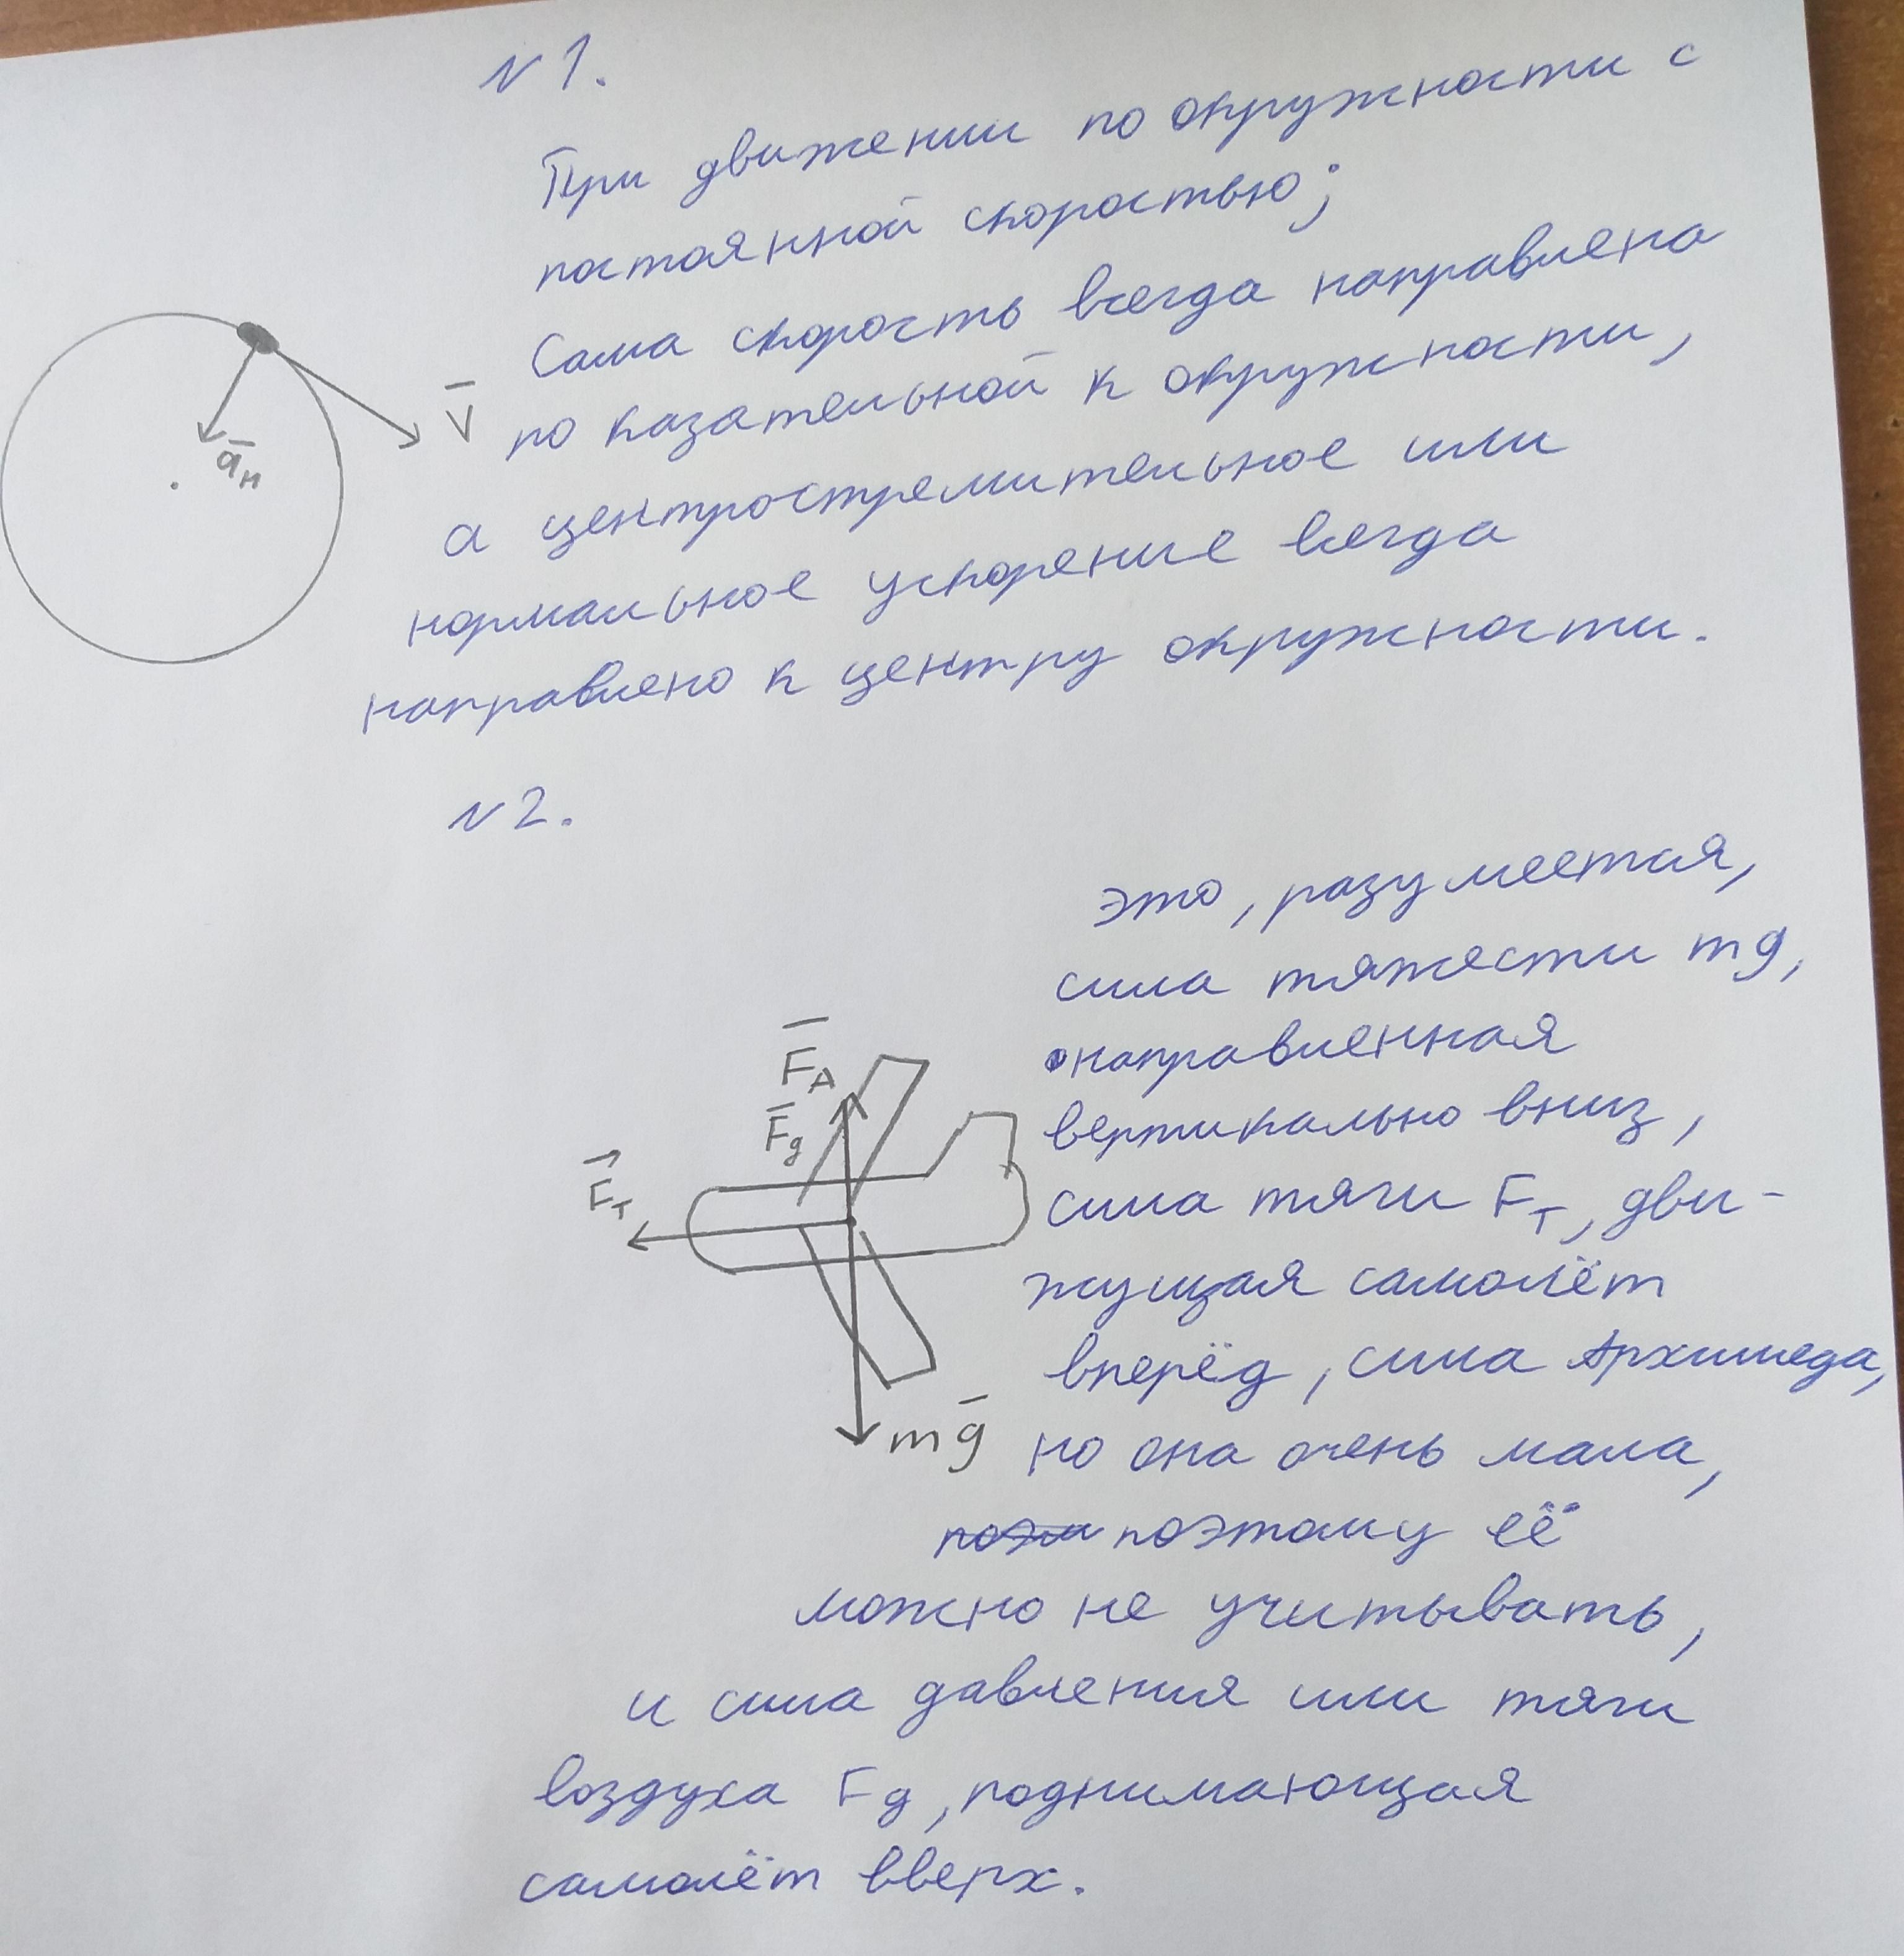 № 1.
При движении по окружности с
постоянной скоростью;
Сама скорость всегда направлена
по казательной к окружности,
а центростремительное или
нормальное ускорение всегда
направлено к центру окружности.
V
aн
№ 2.
это, разумеется,
сила тяжести mg,
направленная
вертикально вниз,
сила тяги Fт, дви-
жущая самолёт
вперёд, сила Архимеда,
но она очень мала,
поэтому её
можно не учитывать,
и сила давления или тяги
воздуха Fg, поднимающая
самолёт вверх.
FA
Fg
Fт
mg